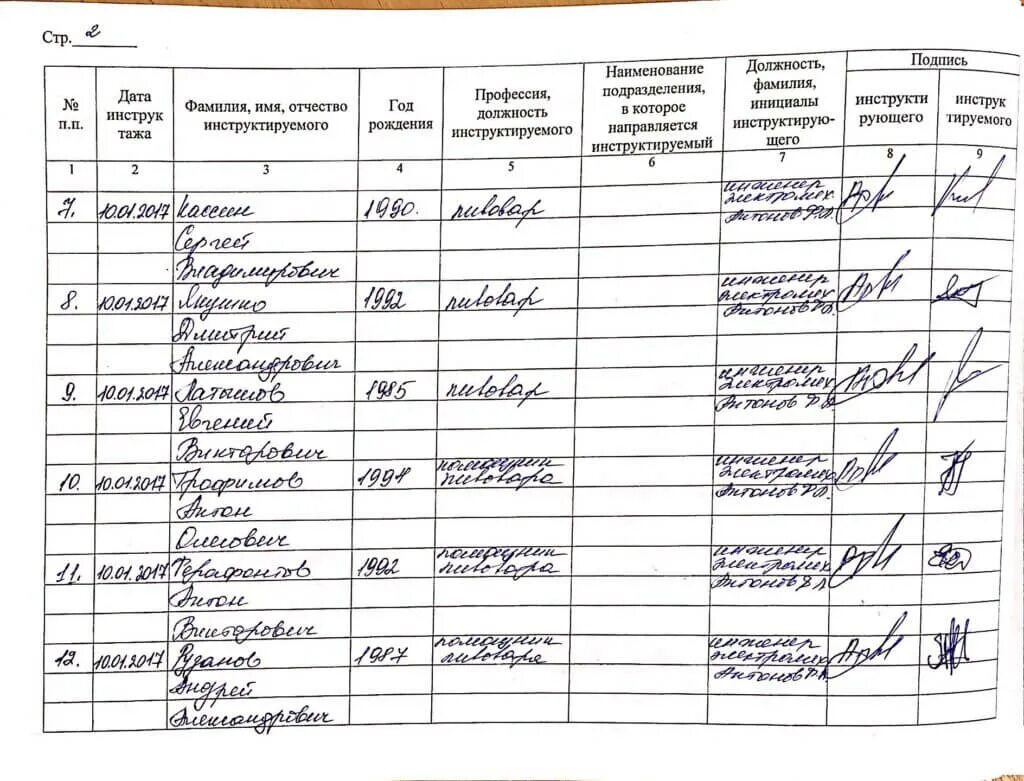 Стр. 2
№ п.п.
Дата инструк тажа
Фамилия, имя, отчество инструктируемого
Год рождения
Профессия, должность инструктируемого
Наименование подразделения, в которое направляется инструктируемый
Должность, фамилия, инициалы инструктирую- щего
Подпись
инструкти рующего
инструк тируемого
1 2 3 4 5 6 7 8 9
7. 10.01.2017 Кассин 1990. пивовар инженер электромех. Антонов Ф.Л.
Сергей
Владимирович
8. 10.01.2017 Якушко 1992 пивовар инженер электромех. Антонов Ф.Л.
Дмитрий
Александрович
9. 10.01.2017 Латышов 1985 пивовар инженер электромех. Антонов Ф.Л.
Евгений
Викторович
10. 10.01.2017 Трофимов 1991 помощник пивовара инженер электромех. Антонов Ф.Л.
Антон
Олегович
11. 10.01.2017 Ферафонтов 1992 помощник пивовара инженер электромех. Антонов Ф.Л.
Антон
Викторович
12. 10.01.2017 Рузанов 1987 помощник пивовара инженер электромех. Антонов Ф.Л.
Андрей
Александрович